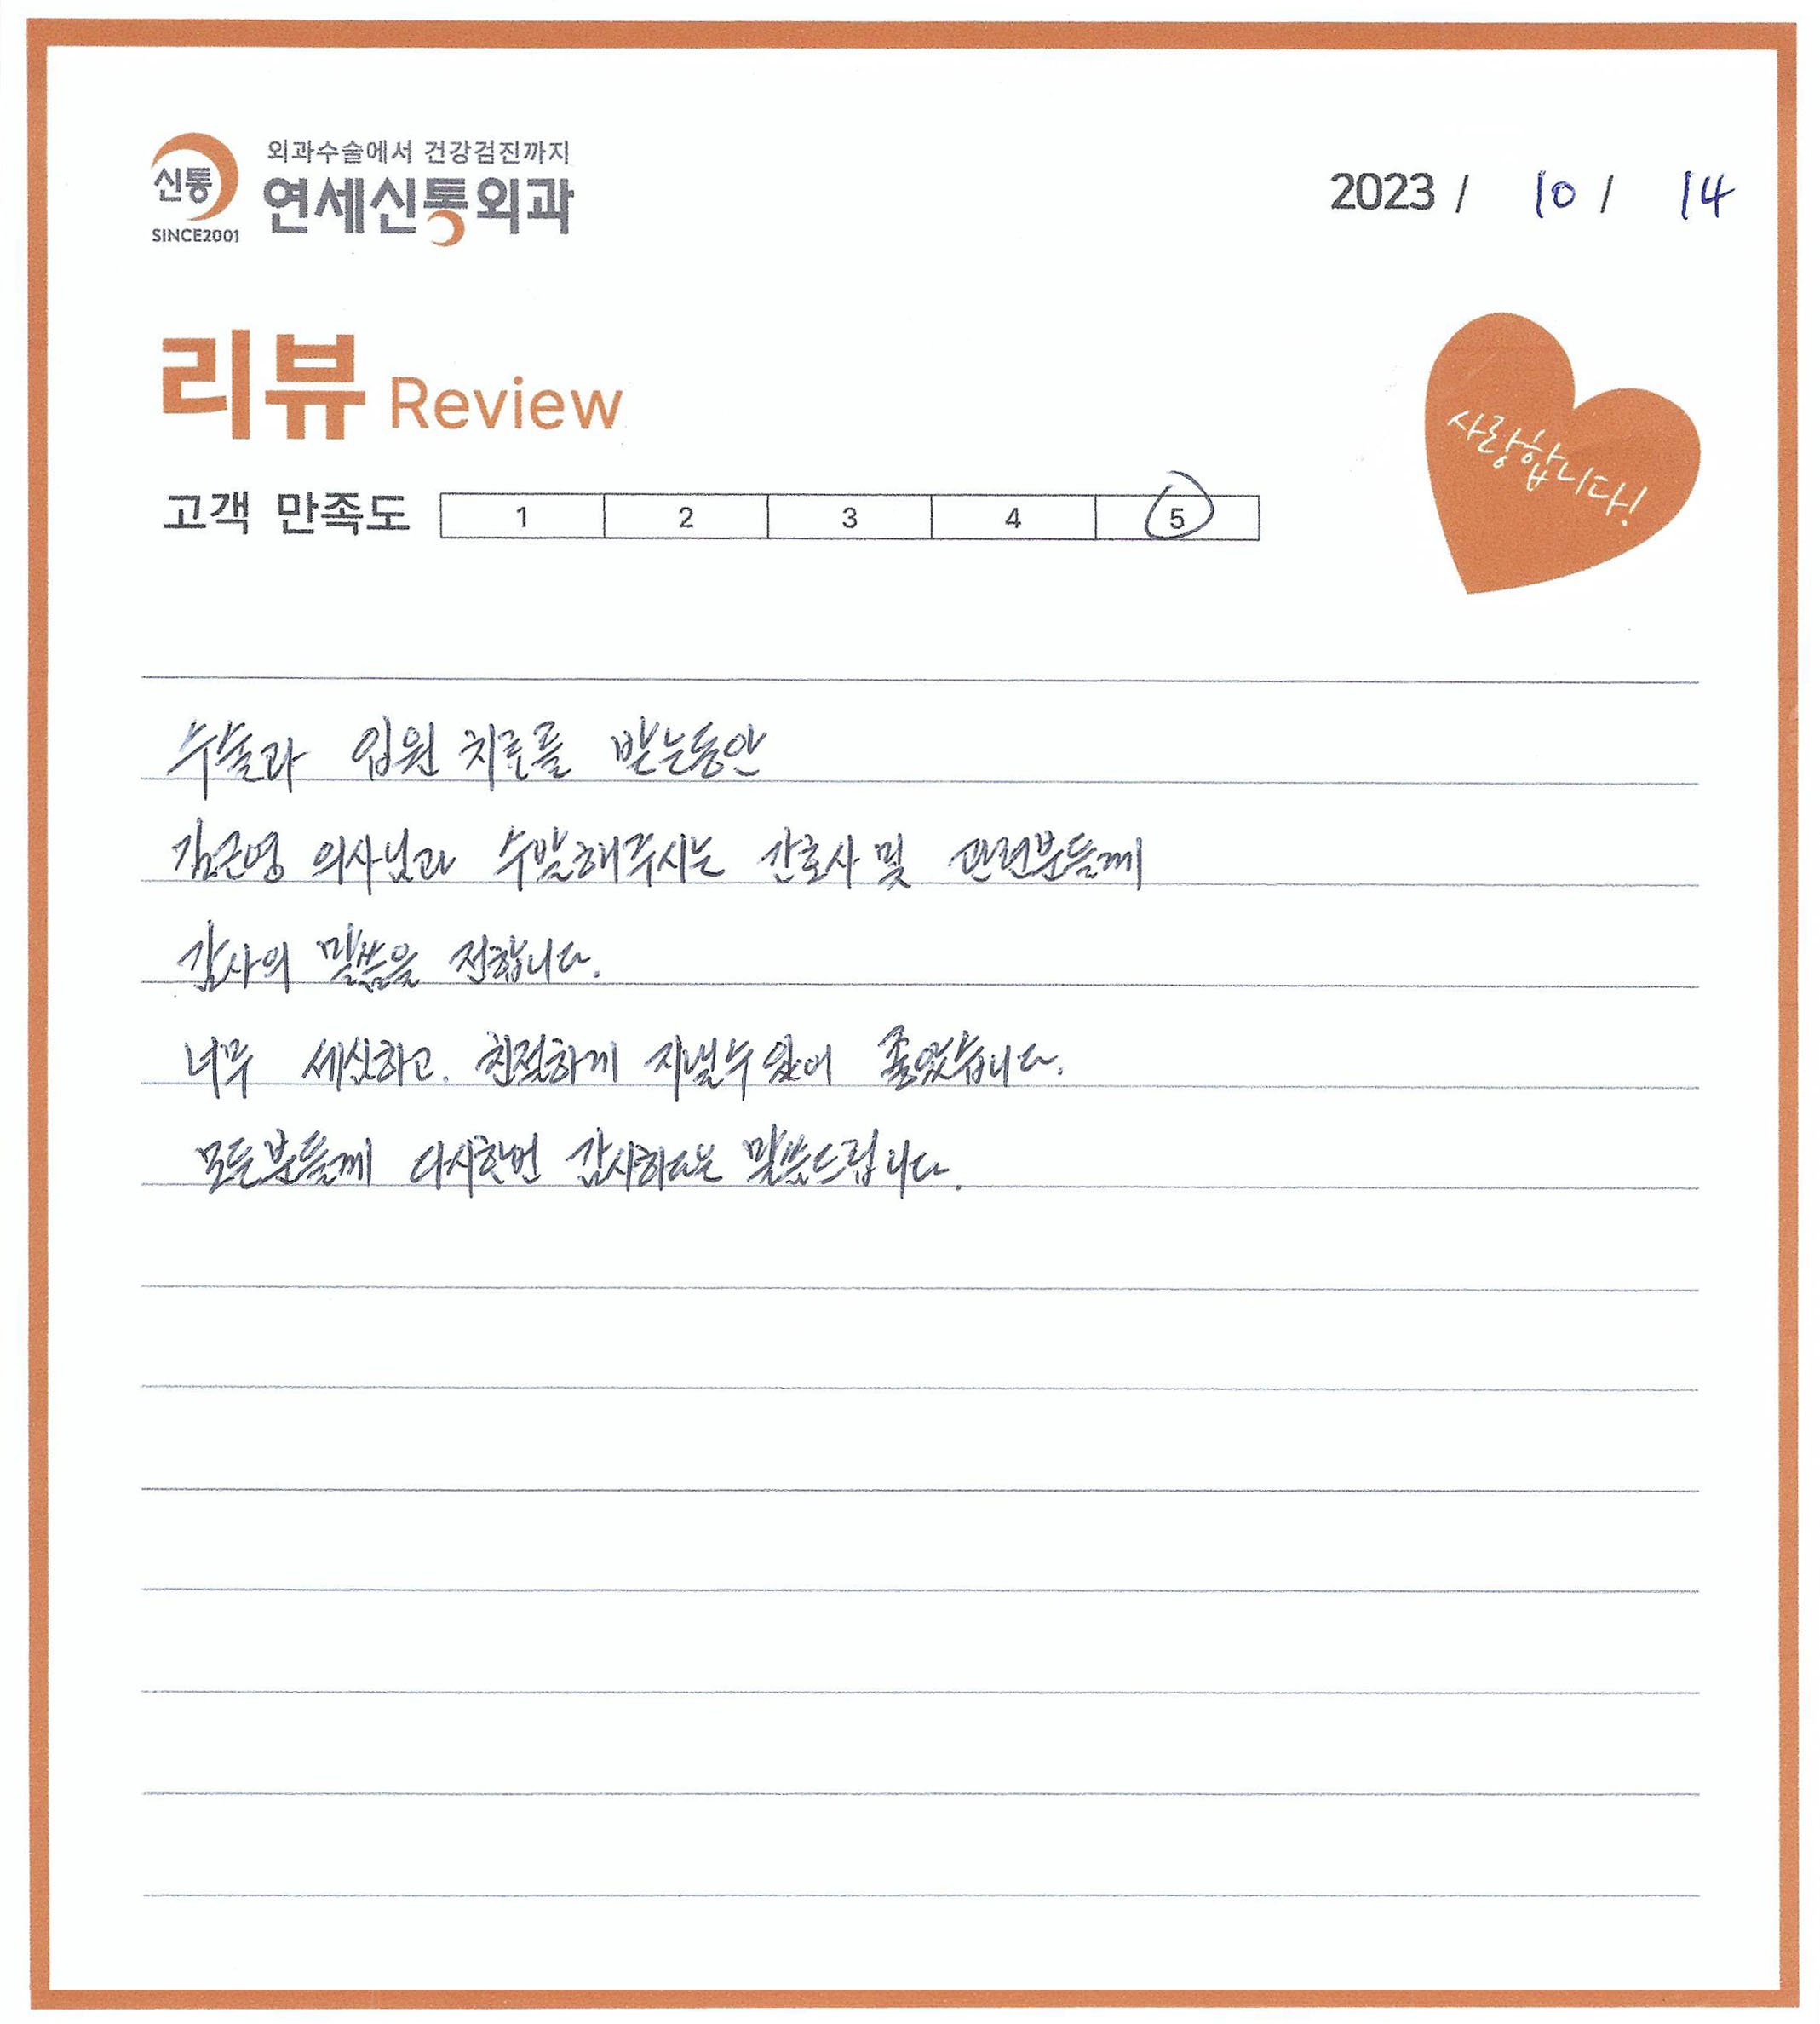 신통
SINCE2001
외과수술에서 건강검진까지
연세신통외과
2023 / 10 / 14
리뷰 Review
사랑합니다!
고객 만족도 1 2 3 4 5
수술과 입원 치료를 받는동안
김근영 의사님과 수발해주시는 간호사 및 관련분들께
감사의 말씀을 전합니다.
너무 세심하고. 친절하게 지낼수 있어 좋았습니다.
모든분들께 다시한번 감사하다는 말씀드립니다.